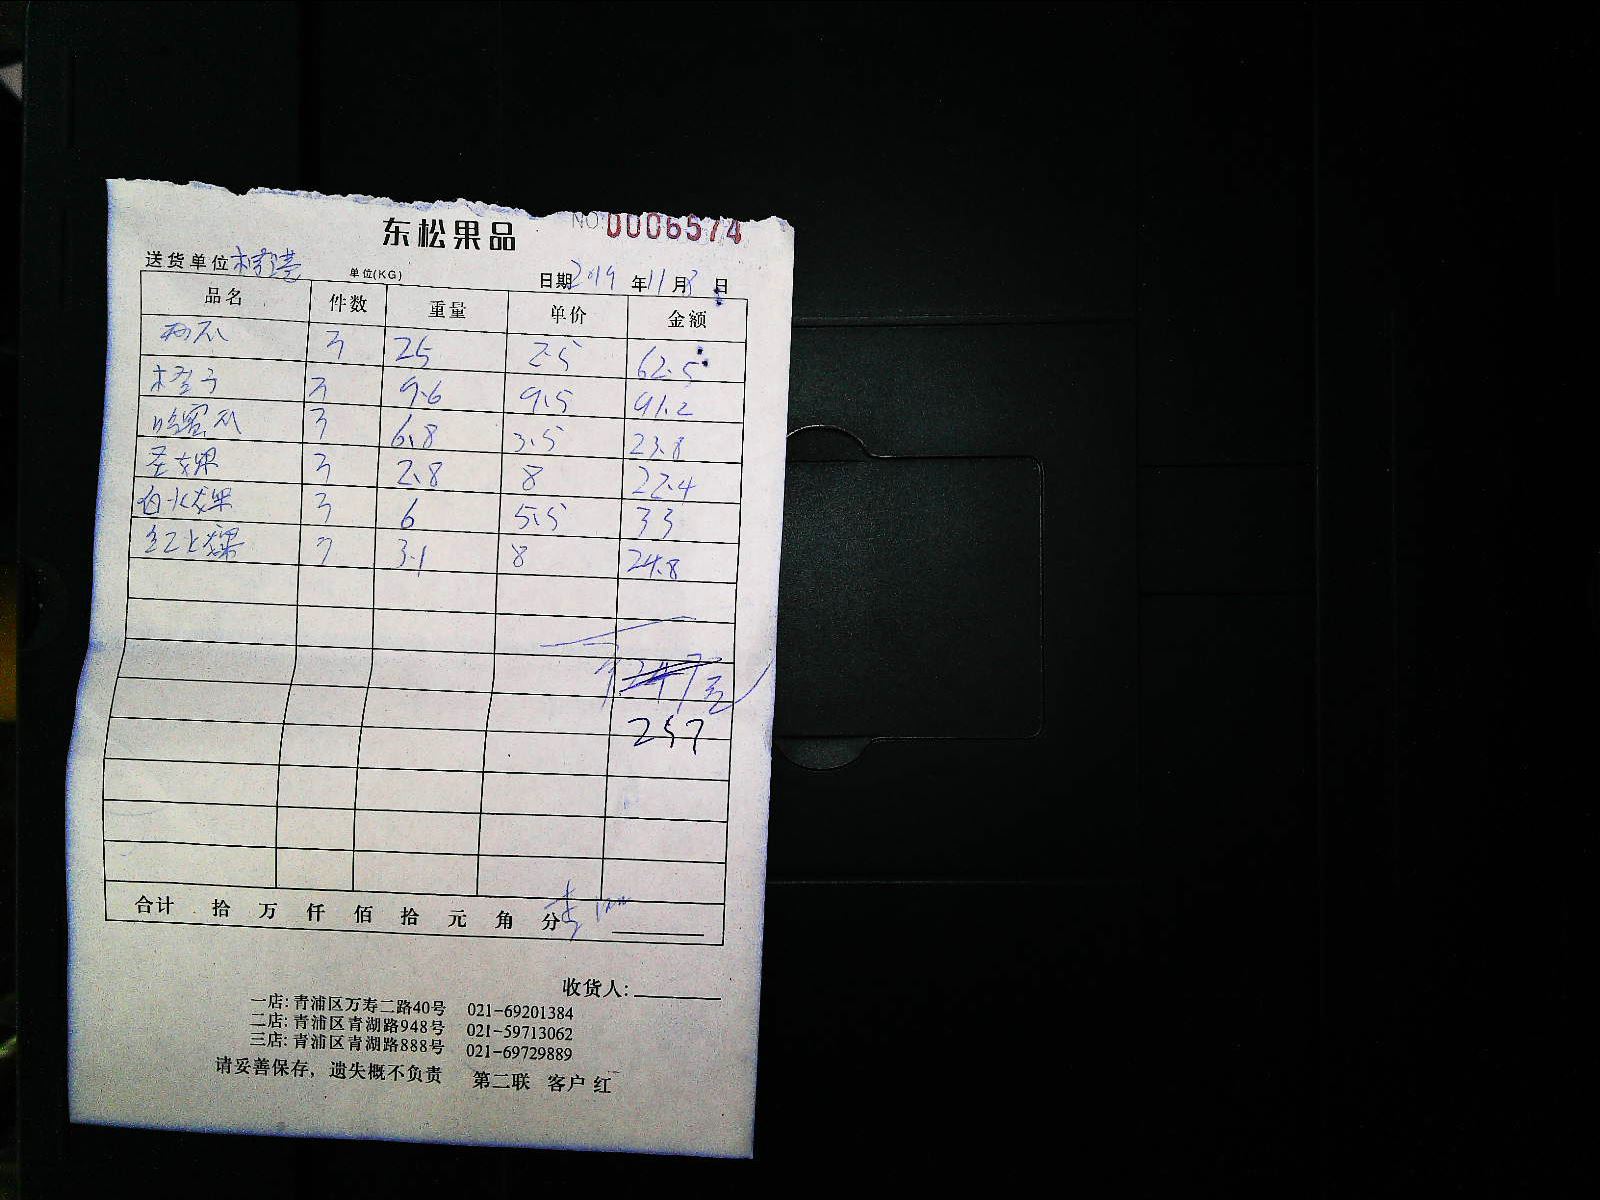 东松果品 NO 0006574
送货单位 单位(KG) 日期2019年11月3日
品名 件数 重量 单价 金额
西瓜 3 25 2.5 62.5
橙子 3 9.6 9.5 91.2
哈密瓜 3 6.8 3.5 23.8
圣女果 3 2.8 8 22.4
白火龙果 3 6 5.5 33
红火龙果 3.1 8 24.8
257
合计 拾 万 仟 佰 拾 元 角 分
收货人:
一店: 青浦区万寿二路40号 021-69201384
二店: 青浦区青湖路948号 021-59713062
三店: 青浦区青湖路888号 021-69729889
请妥善保存，遗失概不负责 第二联 客户 红